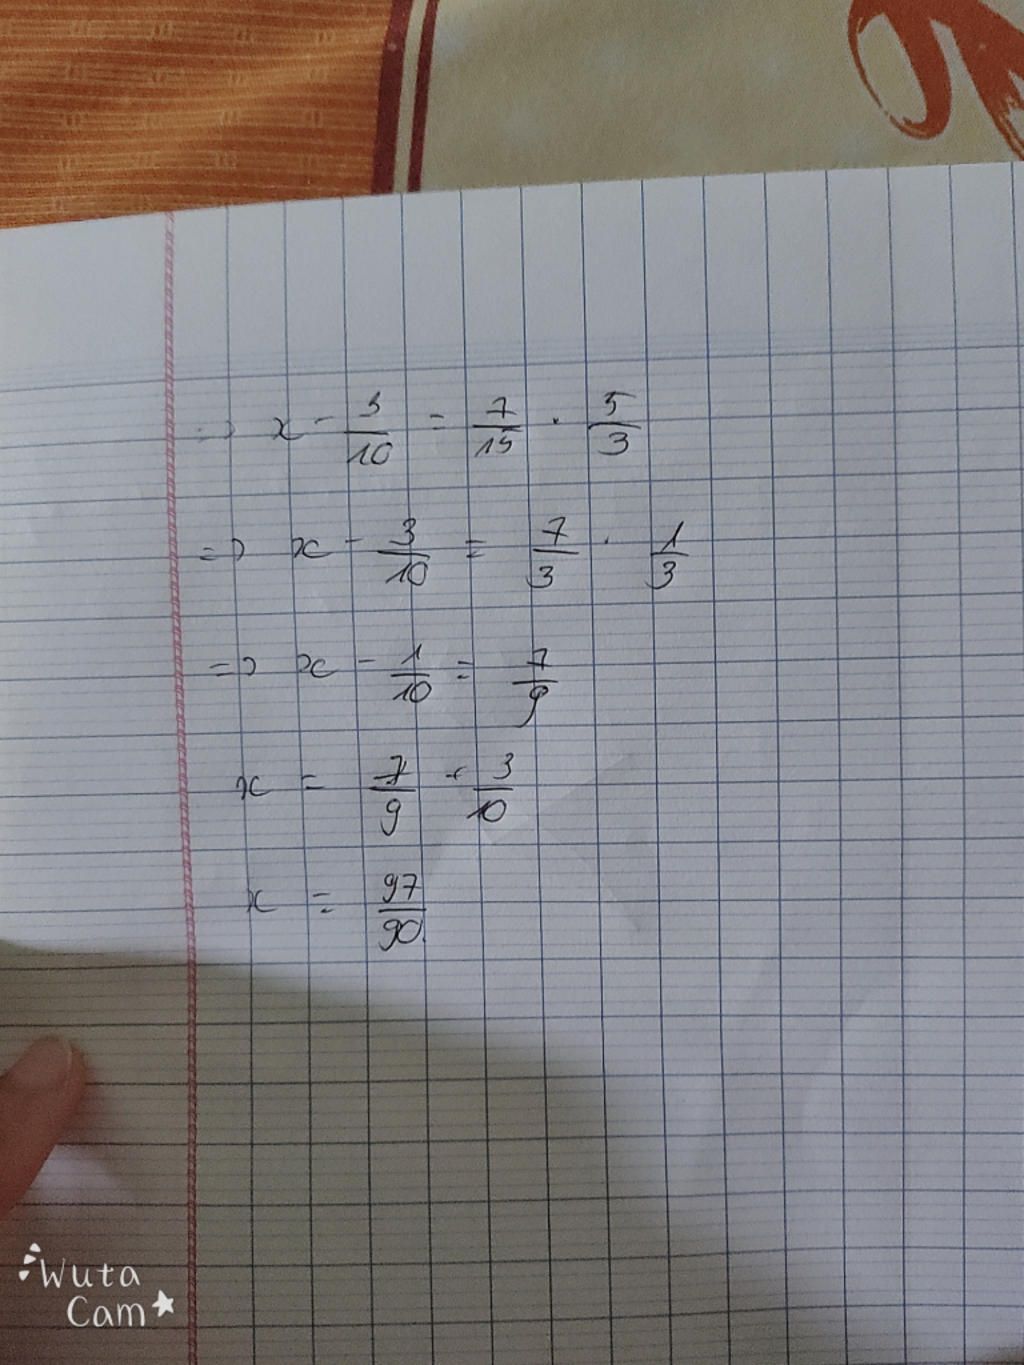 => x - 3/10 = 7/15 . 5/3
=> x - 3/10 = 7/3 . 1/3
=> x - 1/10 = 7/9
x = 7/9 + 3/10
x = 97/90
Wuta
Cam